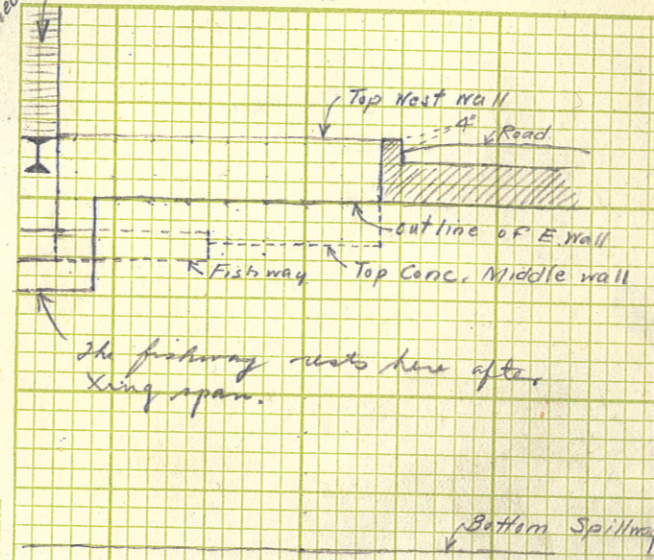 Top West wall
4"
Road
outline of E. Wall
Fishway
Top Conc. Middle wall
The fishway rests here after
Xing span.
Bottom Spillway